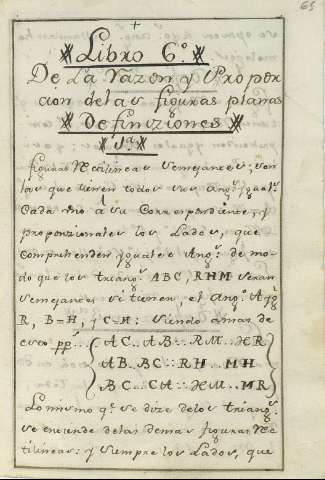 65
Libro 6º
De La razon y Propor
cion delas figuras planas
Definiziones
1ª
figuras Rectilineas semejantes, son
las que tienen todos sus angˢ yguales
Cada uno a su Correspondiente, y
proporzionales los Lados, que
comprehenden yguales Angˢ de mo-
do que los triangˢ ABC, RHM seran
semejantes si tienen, el angº A=
R, B=H, y C=M: siendo a mas de
eso ppˢ
AC.. AB:: RM.. HR
AB.. BC:: RH.. MH
BC.. CA:: HM.. MR
Lo mismo qᵉ se dize delos triangˢ
se entiende delas demas figuras Rec
tilineas: y siempre los Lados, que